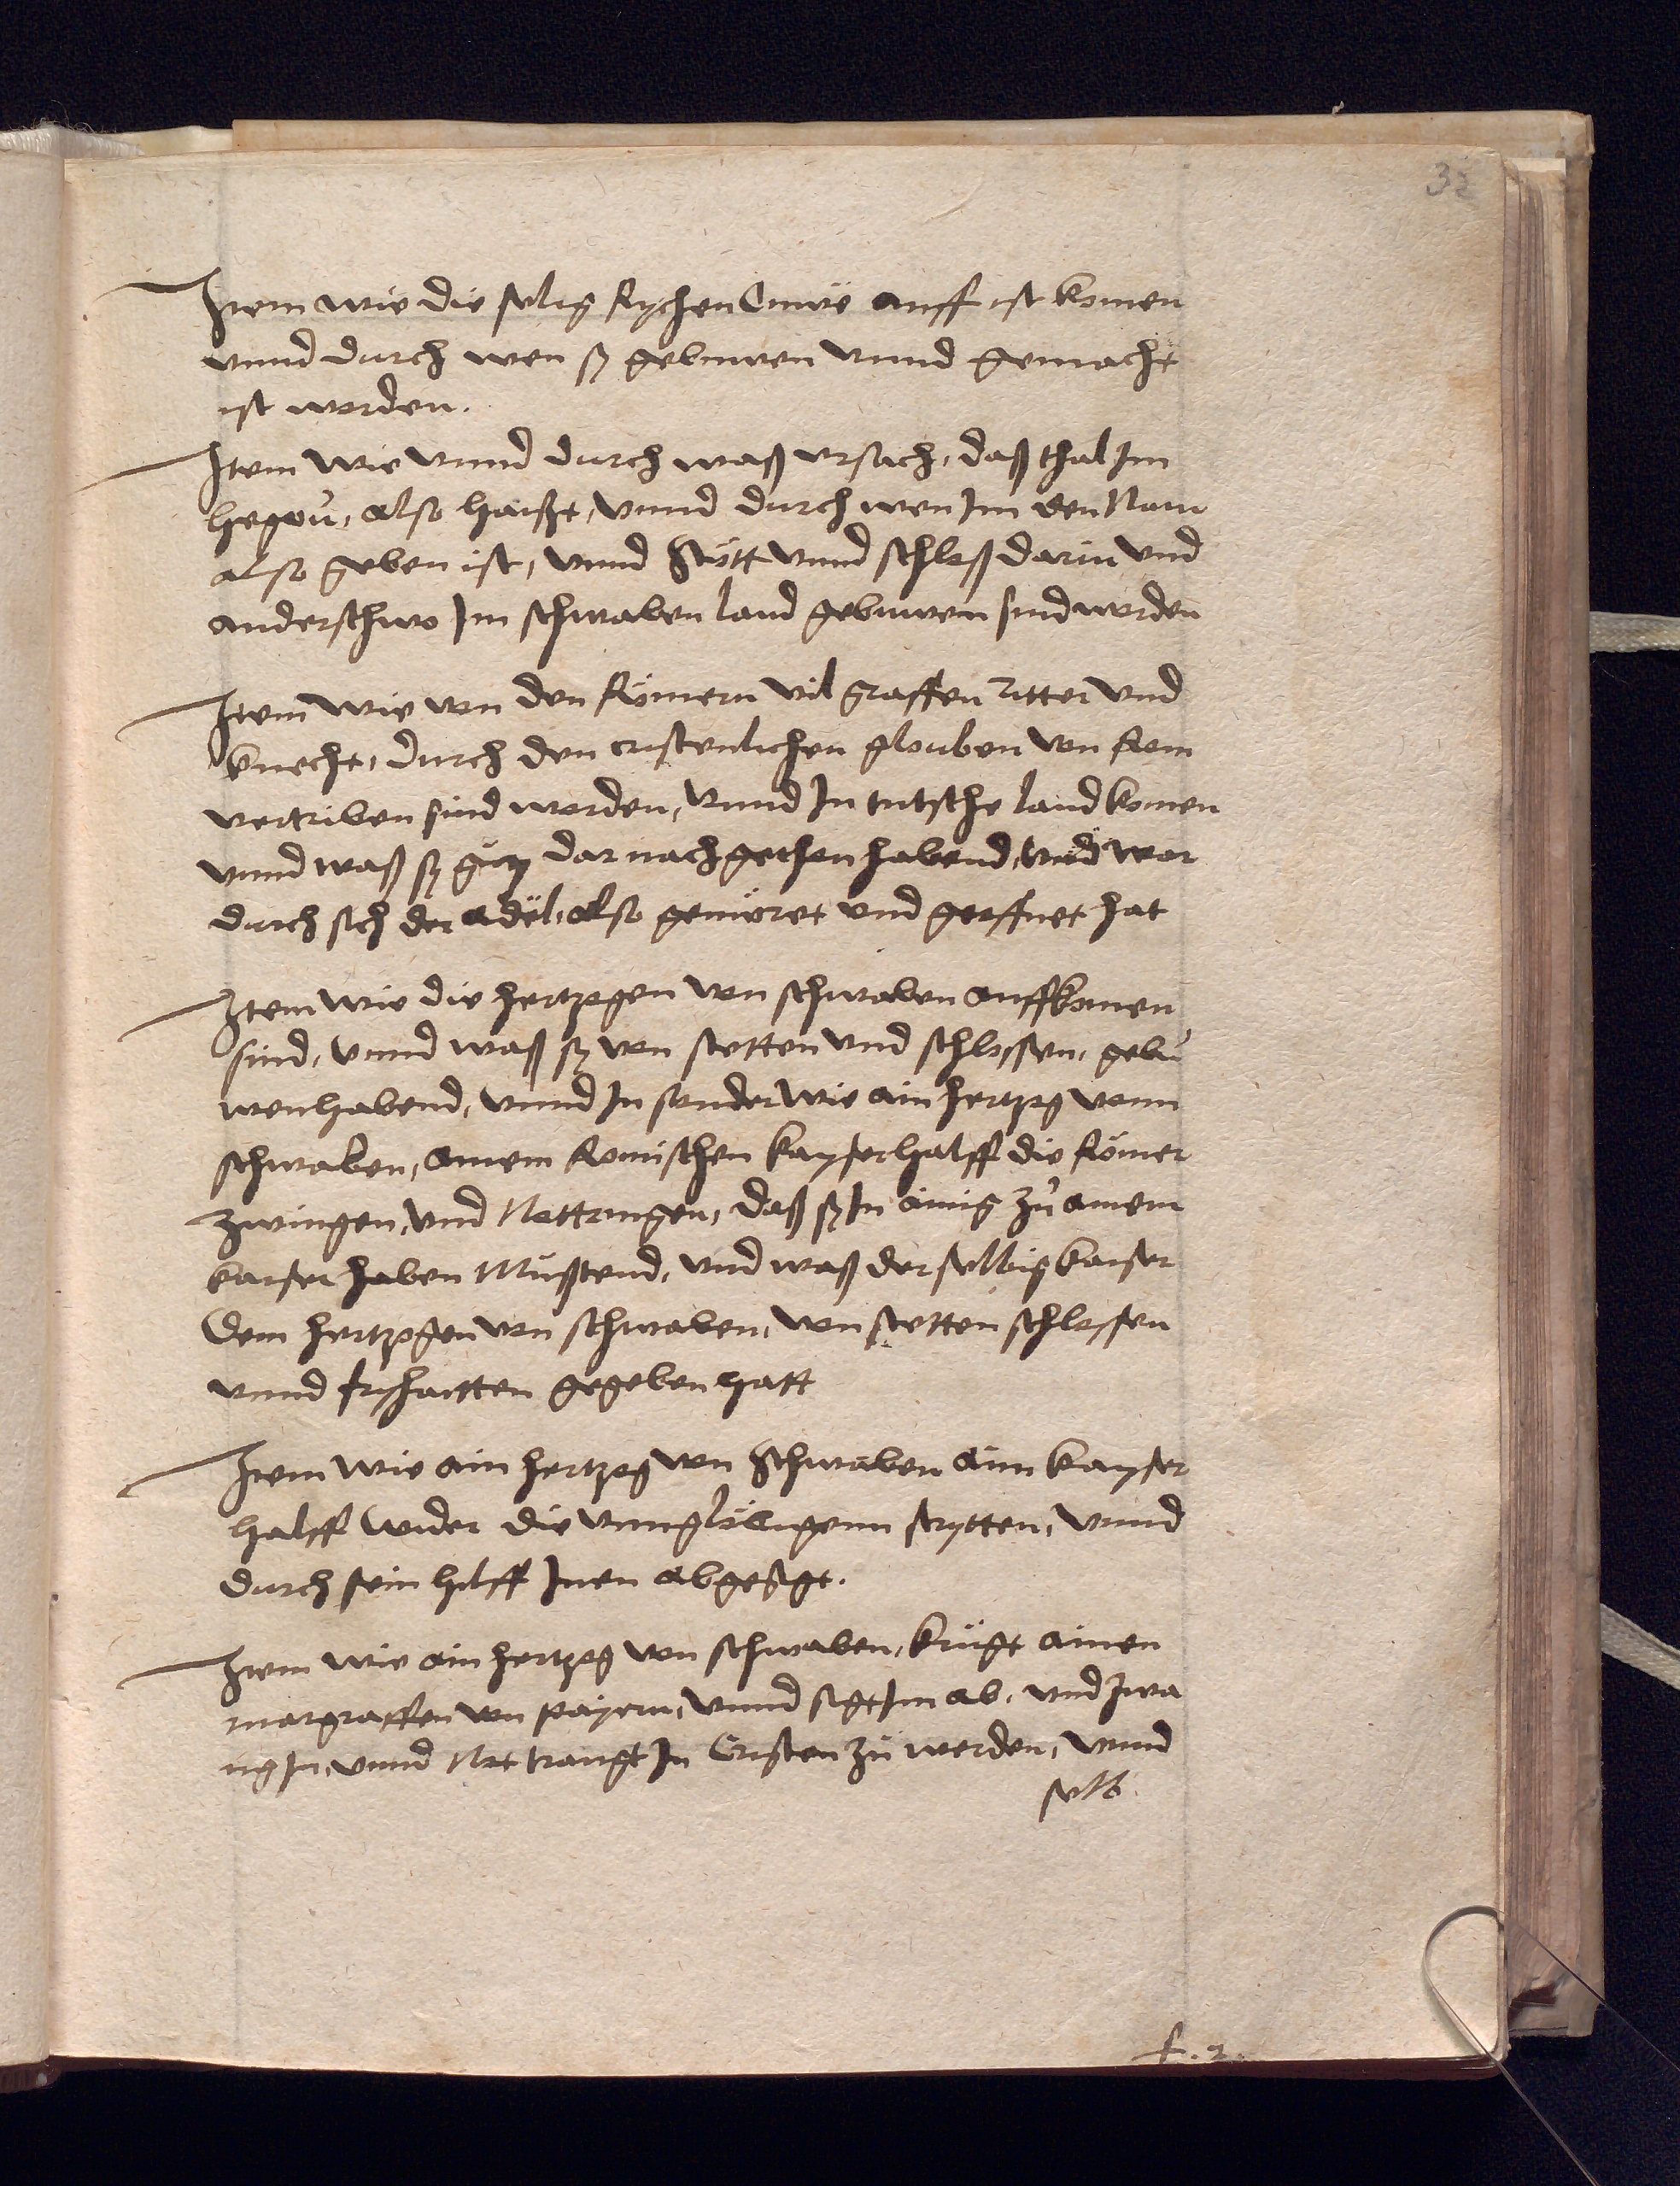 32
Item wie die selig Rychen Ouwe auff ist komen
vnnd durch wen sy gebuwen vnnd gemacht
ist worden.
Item wie vnnd durch waß vrsach, daß thal Im
Hegoü, also haißt, vnnd durch wen Im den Nam
also geben ist, vnnd Stött vnnd schloß darin vnd
anderschwo Im schwaben land gebuwen sind worden
Item wie von den Römern vil graffen Ritter vnd
knecht, durch den cristenlichen glouben von Rom
vertriben sind worden, vnnd In tutsche land komen
vnnd waß sy gutz dar nach gethon habend, vnd war
durch sich der adel, also gemeret vnd geoffnet hat
Item wie die hertzogen von schwaben auffkomen
sind, vnnd waß sy von stetten vnd schlossen, gebü
wen habend, vnnd In sonder wie ain hertzog vonn
schwaben, ainem Romischen kayser halff die Römer
zwingen, vnd Nottringen, daß sy In ainig zü ainem
kaiser haben Müßtend, vnd waß der selbig kaiser
Dem hertzogen von schwaben, von stetten schlossen
vnnd fryhaitten gegeben hatt
Item wie ain hertzog von Schwaben aim kayser
halff wider die vnnglöbigenn strytten, vnnd
durch sein hilff Inen abgesigt.
Item wie ain hertzog von schwaben, kriigt ainen
margraffen von payern, vnnd sigt Im ab, vnd zwa
ng In, vnnd Not trangt In Cristen zü werden, vnnd
selb
f. 2.